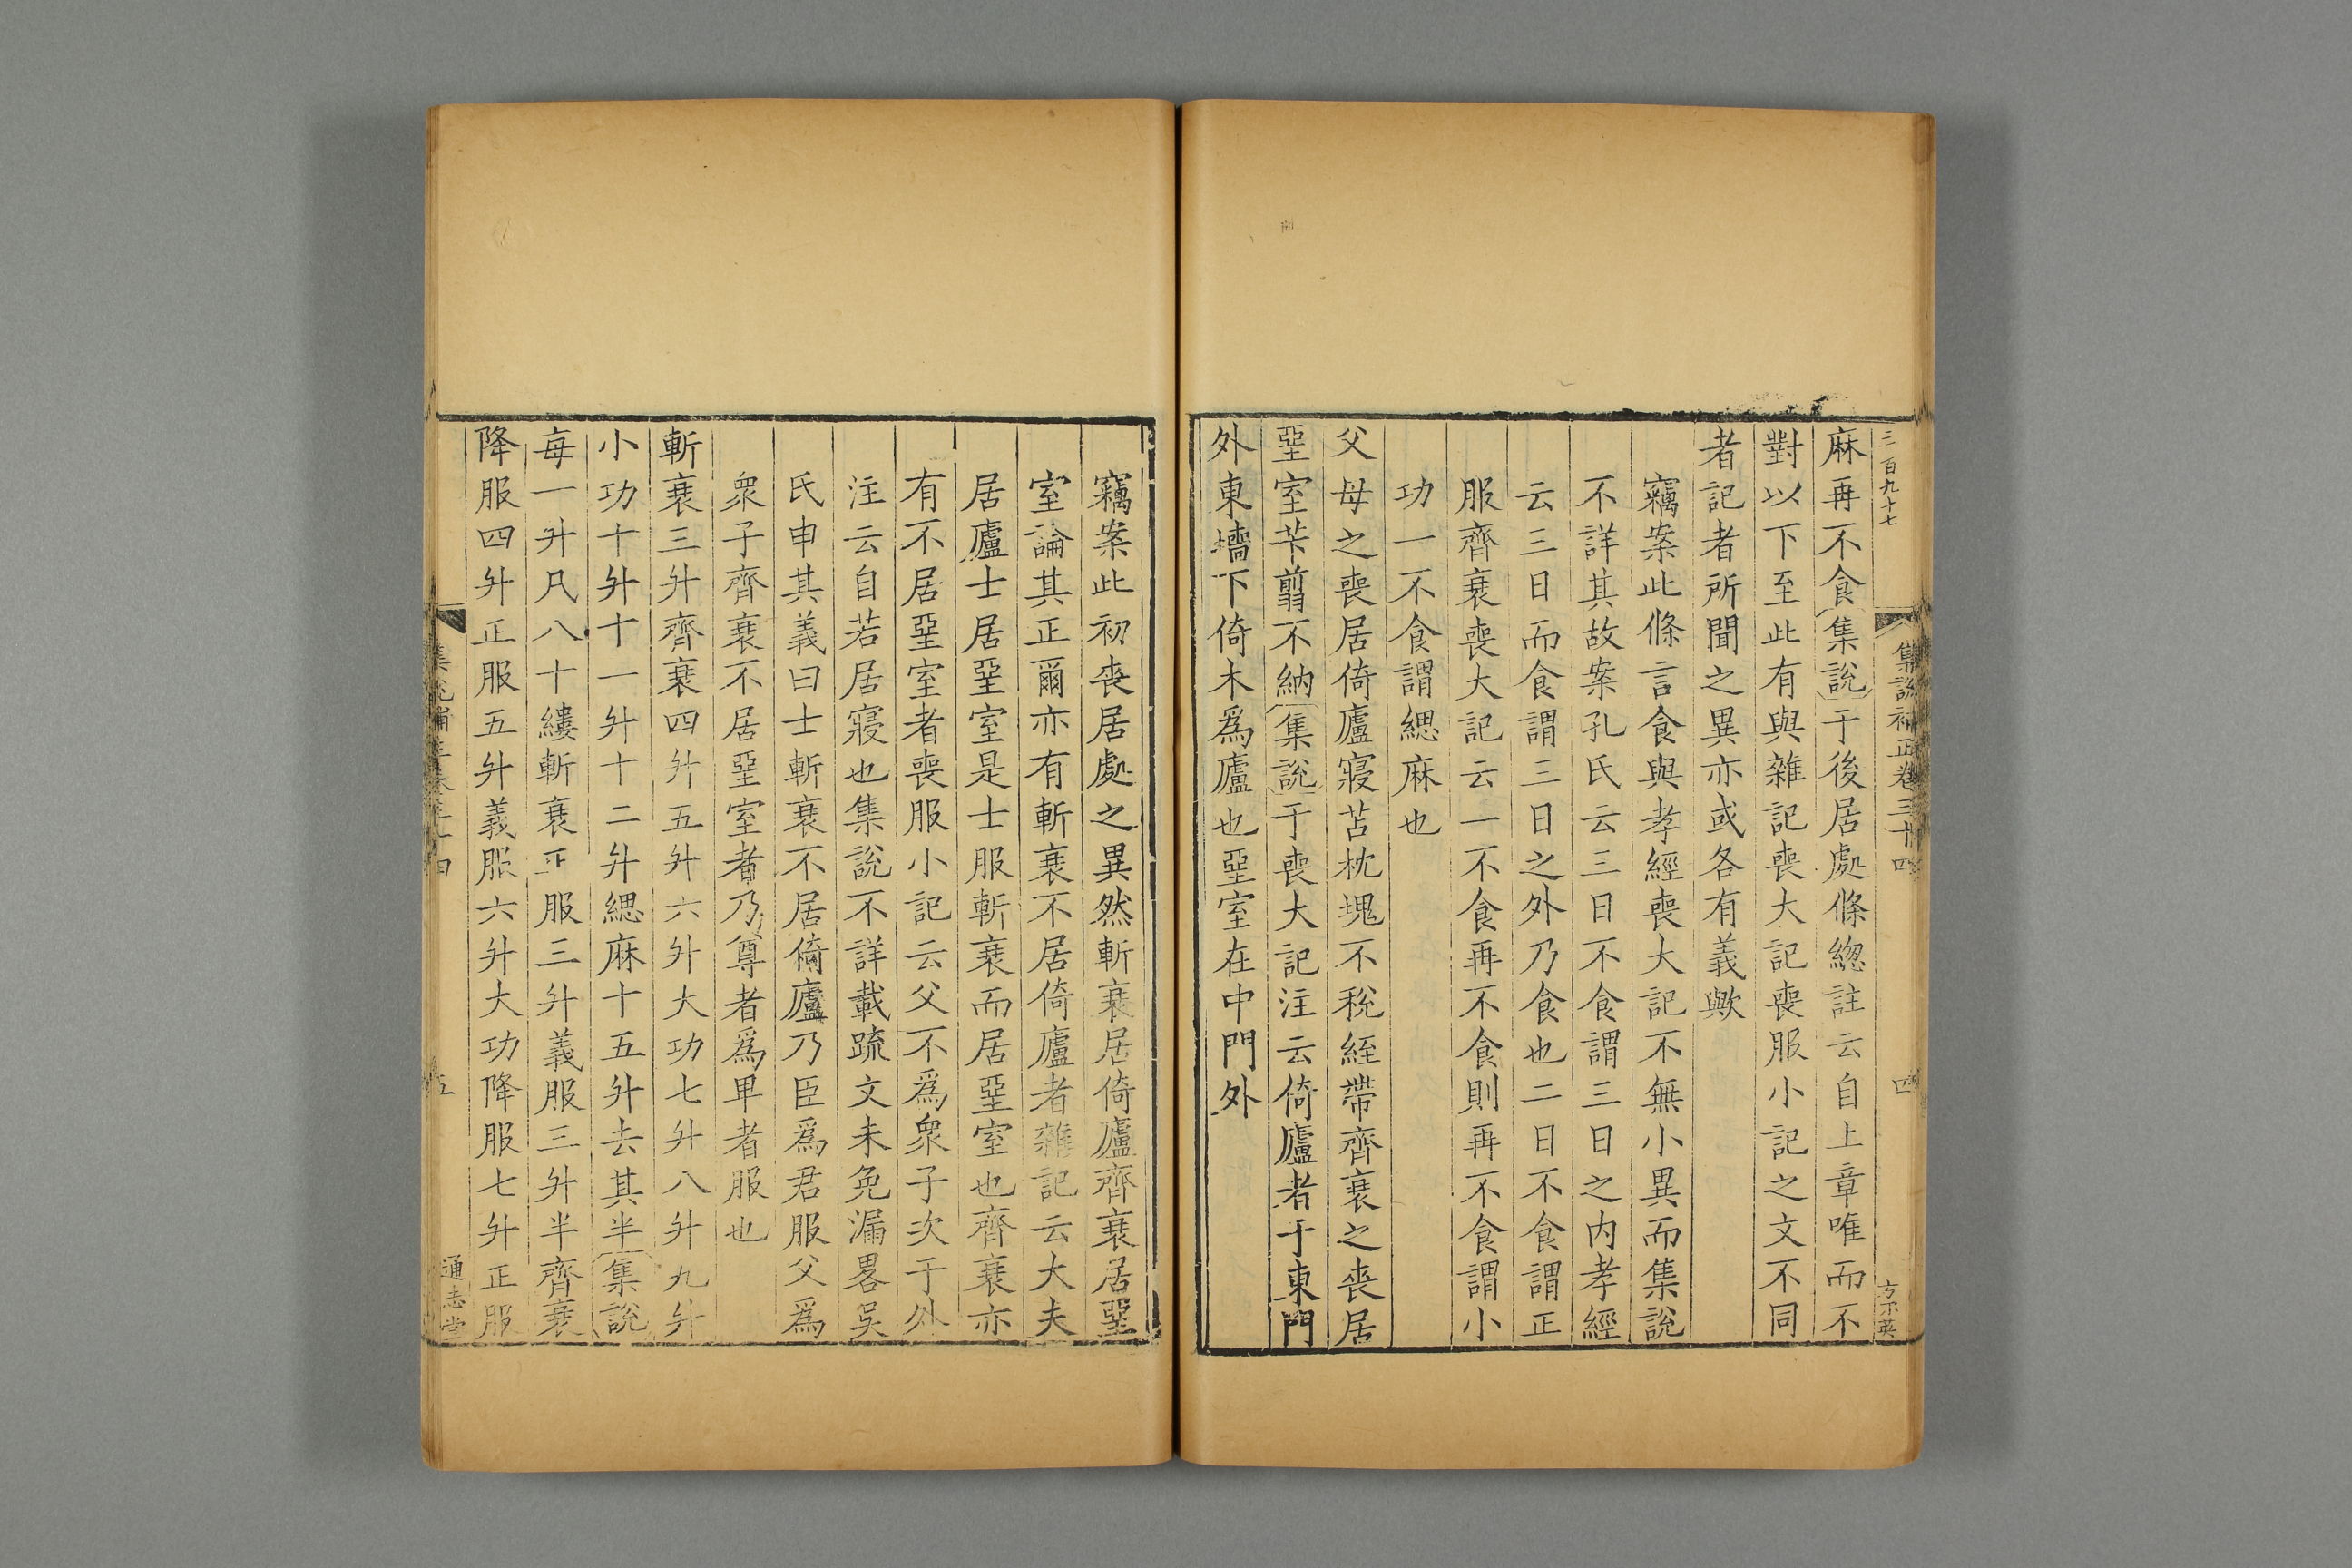 三百九十七
集說補正卷三十四
四
方示英
麻再不食集說于後居處條緫註云自上章唯而不
對以下至此有與雜記喪大記喪服小記之文不同
者記者所聞之異亦或各有義歟
竊案此條言食與孝經喪大記不無小異而集說
不詳其故案孔氏云三日不食謂三日之内孝經
云三日而食謂三日之外乃食也二日不食謂正
服齊衰喪大記云一不食再不食則再不食謂小
功一不食謂緦麻也
父母之喪居倚廬寢苫枕塊不稅絰帶齊衰之喪居
堊室芐翦不納集說于喪大記注云倚廬者于東門
外東墻下倚木爲廬也堊室在中門外
竊案此初喪居處之異然斬衰居倚廬齊衰居堊
室論其正爾亦有斬衰不居倚廬者雜記云大夫
居廬士居堊室是士服斬衰而居堊室也齊衰亦
有不居堊室者喪服小記云父不爲衆子次于外
注云自若居寢也集說不詳載疏文未免漏畧吳
氏申其義曰士斬衰不居倚廬乃臣爲君服父爲
衆子齊衰不居堊室者乃尊者爲卑者服也
斬衰三升齊衰四升五升六升大功七升八升九升
小功十升十一升十二升緦麻十五升去其半集說
每一升凡八十縷斬衰正服三升義服三升半齊衰
降服四升正服五升義服六升大功降服七升正服
五
通志堂